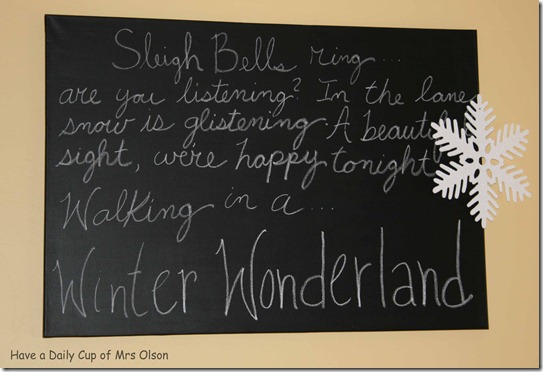 Sleigh Bells ring...
are you listening? In the lane
snow is glistening. A beautiful
sight, were happy tonight
Walking in a...
Winter Wonderland
Have a Daily Cup of Mrs Olson